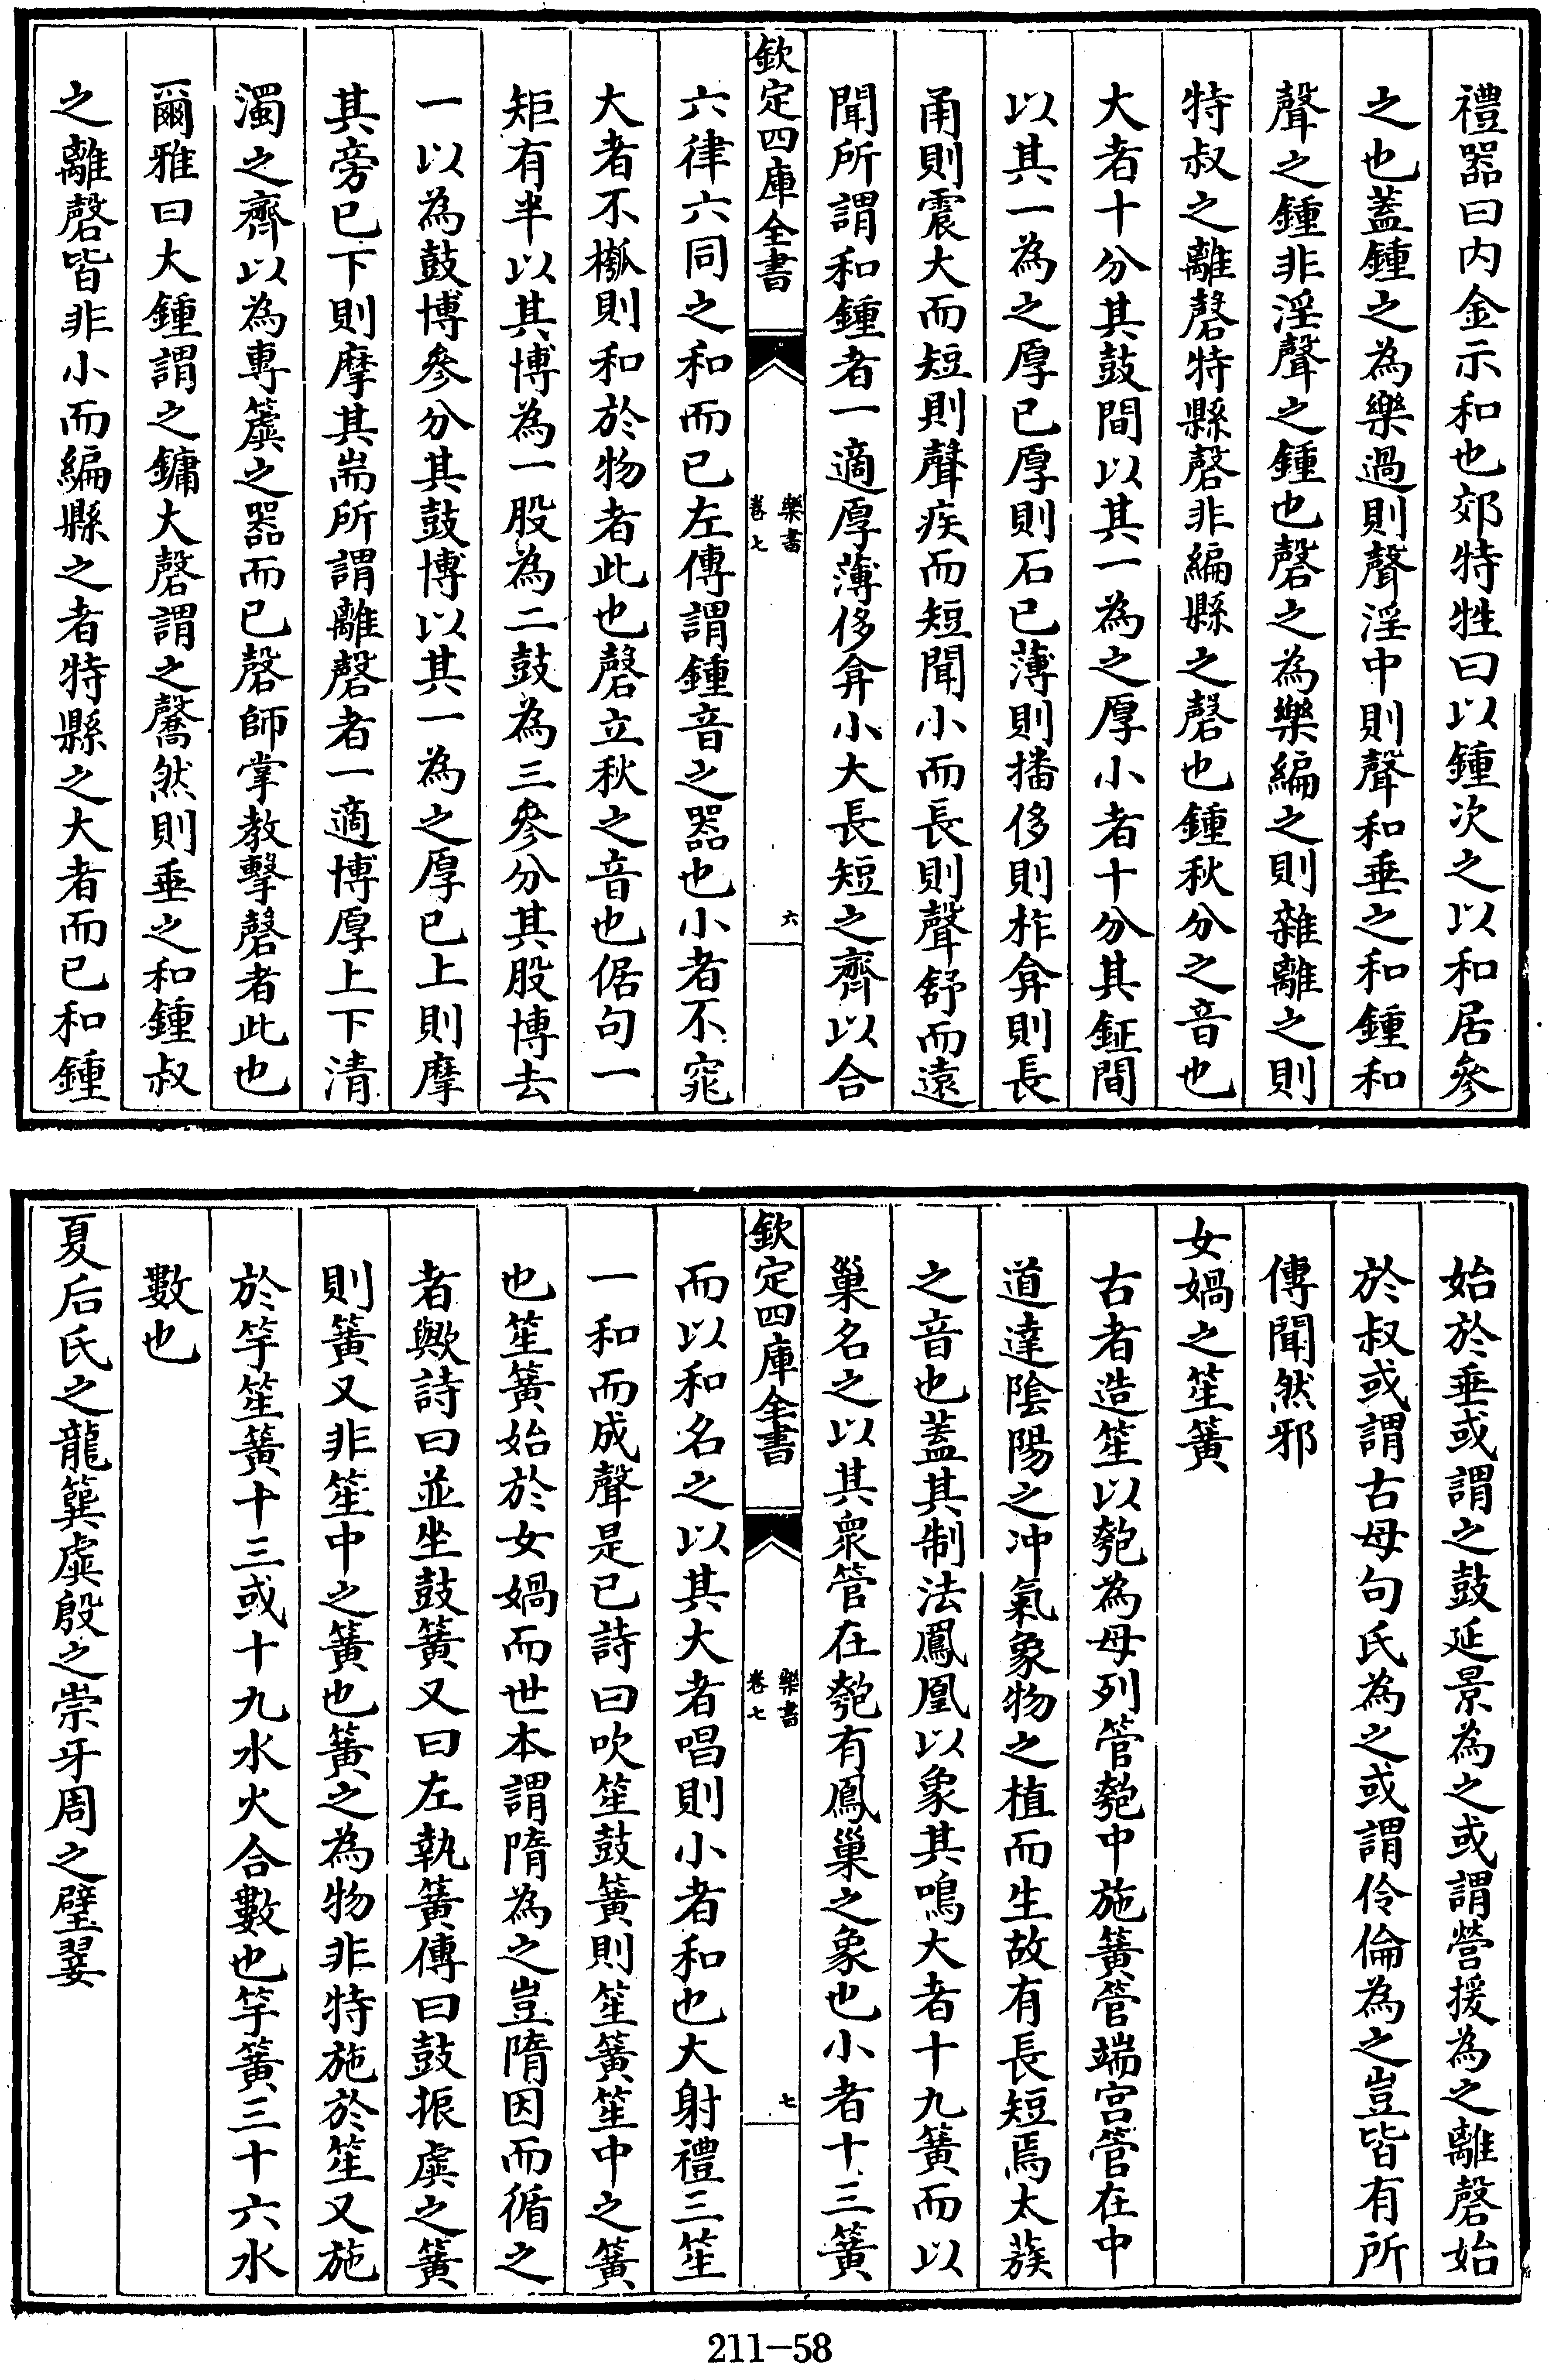 禮器曰内金示和也郊特牲曰以鍾次之以和居參
之也蓋鍾之為樂過則聲淫中則聲和垂之和鍾和
聲之鍾非淫聲之鍾也磬之為樂編之則雜離之則
特叔之離磬特縣磬非編縣之磬也鍾秋分之音也
大者十分其鼓間以其一為之厚小者十分其鉦間
以其一為之厚已厚則石已薄則播侈則柞弇則長
甬則震大而短則聲疾而短聞小而長則聲舒而遠
聞所謂和鍾者一適厚薄侈弇小大長短之齊以合
欽定四庫全書
樂書
卷七
六
六律六同之和而已左傳謂鍾音之器也小者不窕
大者不槬則和於物者此也磬立秋之音也倨句一
矩有半以其博為一股為二鼓為三參分其股博去
一以為鼓博參分其鼓博以其一為之厚已上則摩
其旁已下則摩其耑所謂離磬者一適博厚上下清
濁之齊以為專簴之器而已磬師掌教擊磬者此也
爾雅曰大鍾謂之鏞大磬謂之毊然則垂之和鍾叔
之離磬皆非小而編縣之者特縣之大者而已和鍾
始於垂或謂之鼓延景為之或謂營援為之離磬始
於叔或謂古母句氏為之或謂伶倫為之豈皆有所
傳聞然邪
女媧之笙簧
古者造笙以匏為母列管匏中施簧管端宫管在中
道達陰陽之冲氣象物之植而生故有長短焉太蔟
之音也蓋其制法鳳凰以象其鳴大者十九簧而以
巢名之以其衆管在匏有鳳巢之象也小者十三簧
欽定四庫全書
樂書
卷七
七
而以和名之以其大者唱則小者和也大射禮三笙
一和而成聲是已詩曰吹笙鼓簧則笙簧笙中之簧
也笙簧始於女媧而世本謂隋為之豈隋因而循之
者歟詩曰並坐鼓簧又曰左執簧傳曰鼓振虡之簧
則簧又非笙中之簧也簧之為物非特施於笙又施
於竽笙簧十三或十九水火合數也竽簧三十六水
數也
夏后氏之龍簨虡殷之崇牙周之璧翣
211-58